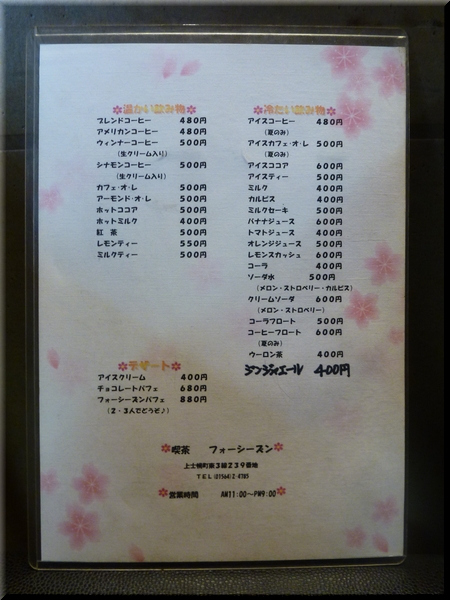 ✿温かい飲み物✿
ブレンドコーヒー 480円
アメリカンコーヒー 480円
ウィンナーコーヒー 500円
(生クリーム入り)
シナモンコーヒー 500円
(生クリーム入り)
カフェ・オ・レ 500円
アーモンド・オ・レ 500円
ホットココア 500円
ホットミルク 400円
紅 茶 500円
レモンティー 550円
ミルクティー 500円
✿冷たい飲み物✿
アイスコーヒー 480円
(夏のみ)
アイスカフェ・オ・レ 500円
(夏のみ)
アイスココア 600円
アイスティー 500円
ミルク 400円
カルピス 400円
ミルクセーキ 500円
バナナジュース 600円
トマトジュース 400円
オレンジジュース 500円
レモンスカッシュ 600円
コーラ 400円
ソーダ水 500円
(メロン・ストロベリー・カルピス)
クリームソーダ 600円
(メロン・ストロベリー)
コーラフロート 500円
コーヒーフロート 600円
(夏のみ)
ウーロン茶 400円
ジンジャエール 400円
✿デザート✿
アイスクリーム 400円
チョコレートパフェ 680円
フォーシーズンパフェ 880円
(2・3人でどうぞ♪)
✿喫茶 フォーシーズン✿
上士幌町東3線239番地
TEL(01564)2-4785
✿営業時間 AM11:00~PM9:00✿